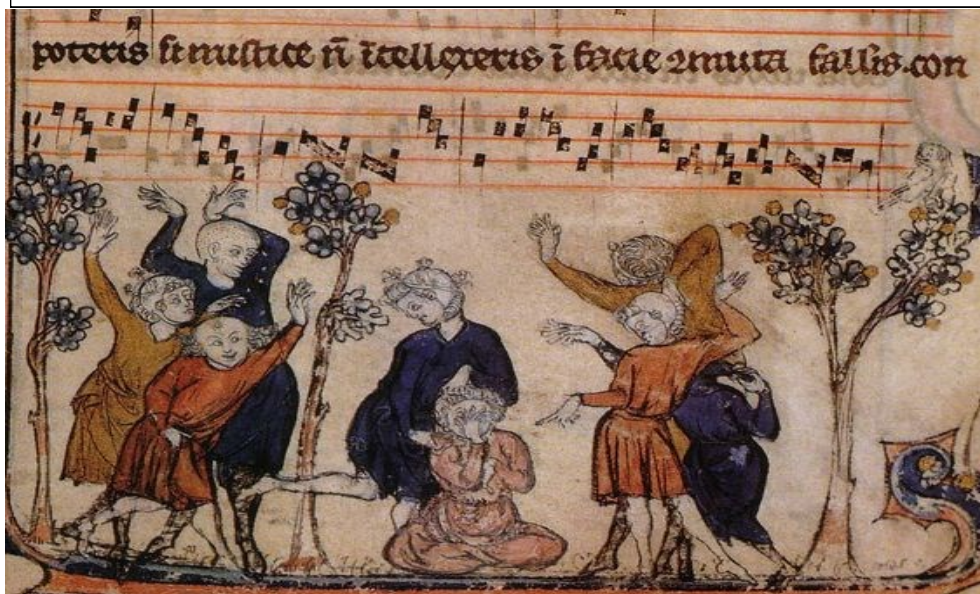 poteris si mustice n̄ ītellexeris ī facie 2muta fallis.con